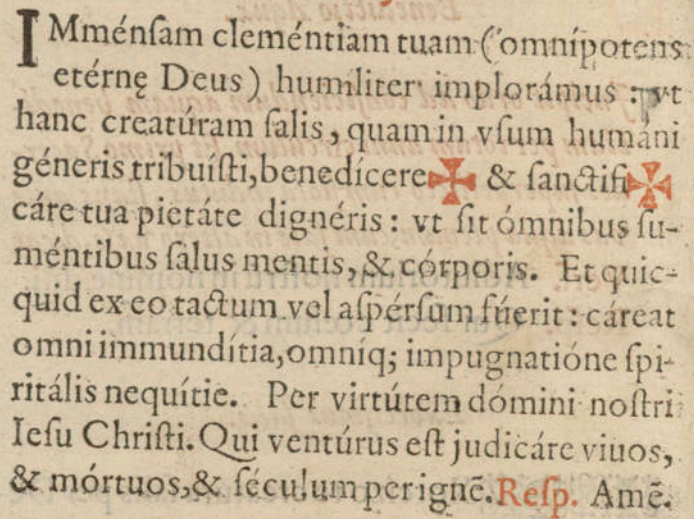 IMménſam cleméntiam tuam (omnípotens
etérnę Deus) humiliter implorámus : vt
hanc creatúram ſalis, quam in vſum humáni
géneris tribuíſti, benedícere ✠ & ſanctifi ✠
cáre tua pietáte dignéris : vt ſit ómnibus ſu-
méntibus ſalus mentis, & córporis. Et quic-
quid ex eo tactum vel aſpérſum fúerit : cáreat
omni immundítia, omníq; impugnatióne ſpi-
ritális nequítie. Per virtútem dómini noſtri
Ieſu Chriſti. Qui ventúrus eſt judicáre viuos,
& mórtuos, & ſéculum per ignē. Reſp. Amē.